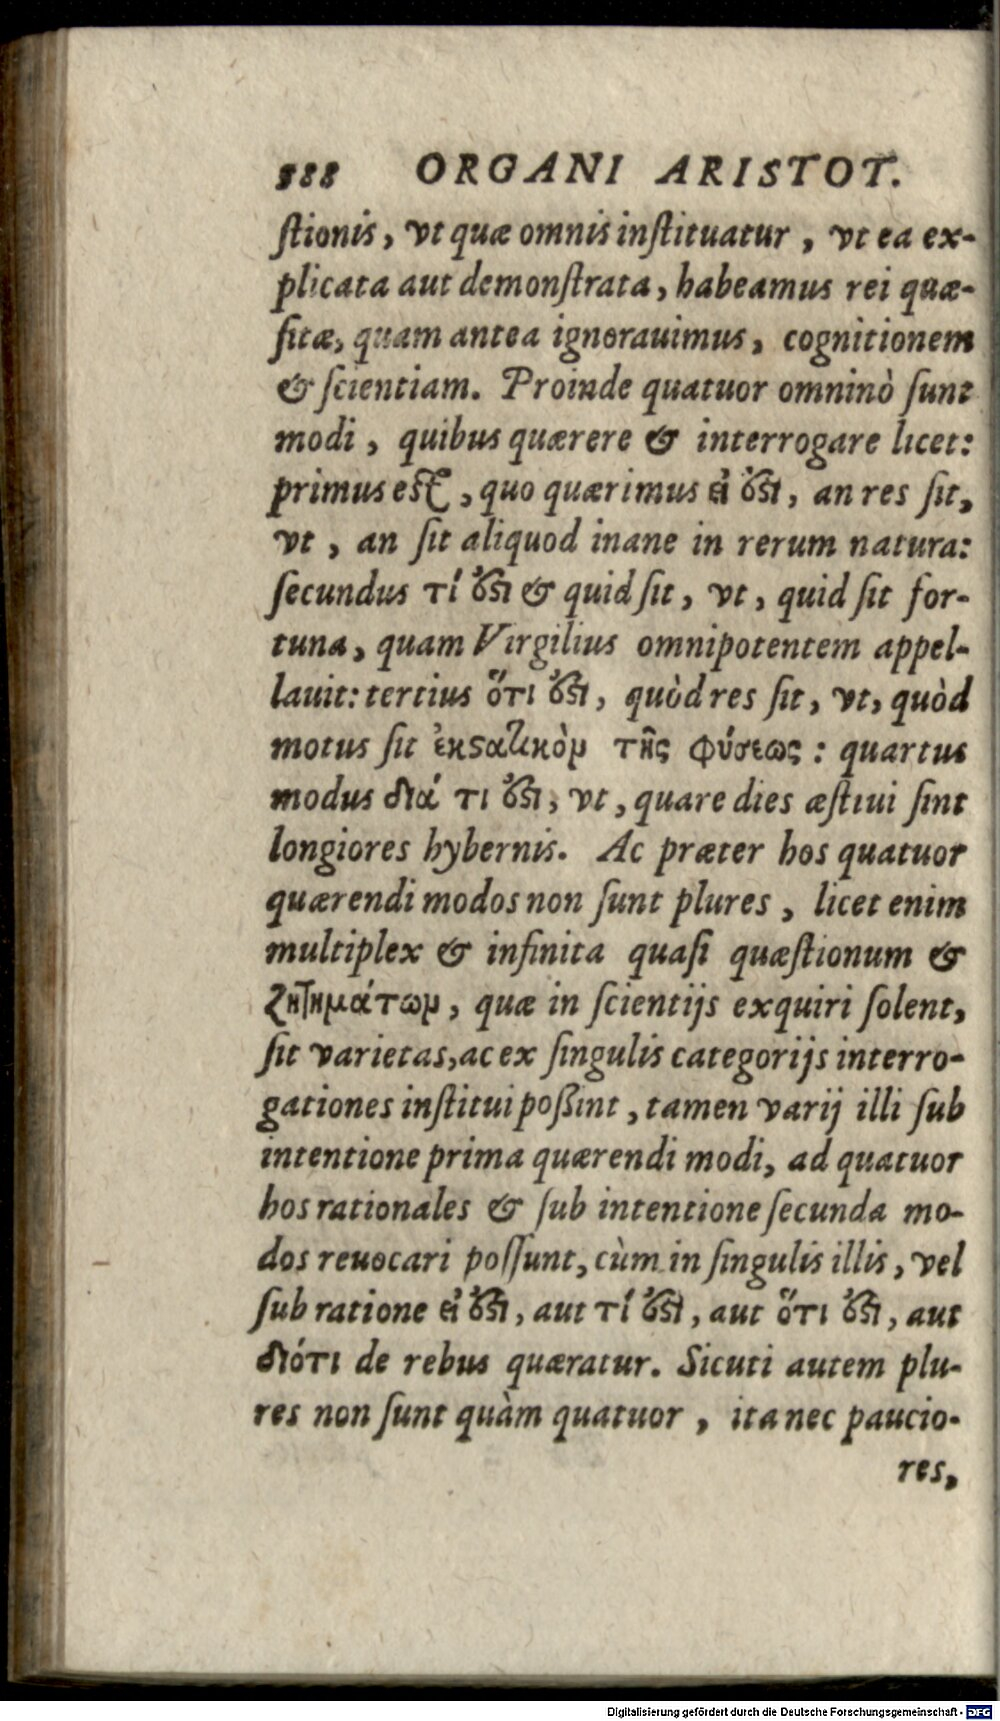 888 ORGANI ARISTOT.
ſtionis, vt quæ omnis inſtituatur, vt ea ex-
plicata aut demonſtrata, habeamus rei quæ-
ſitæ, quam antea ignorauimus, cognitionem
& ſcientiam. Proinde quatuor omninò ſunt
modi, quibus quærere & interrogare licet:
primus eſt, quo quærimus εἰ ὅ ϛι, an res ſit,
vt, an ſit aliquod inane in rerum natura:
ſecundus τί ὅ ϛι & quid ſit, vt, quid ſit for-
tuna, quam Virgilius omnipotentem appel-
lauit: tertius ὅτι ὅ ϛι, quòd res ſit, vt, quòd
motus ſit ἐκϛατικὸν τῆς φύσεως: quartus
modus διά τι ὅ ϛι, vt, quare dies æſtiui ſint
longiores hybernis. Ac præter hos quatuor
quærendi modos non ſunt plures, licet enim
multiplex & infinita quaſi quæſtionum &
ζητημάτων, quæ in ſcientijs exquiri ſolent,
ſit varietas, ac ex ſingulis categorijs interro-
gationes inſtitui poßint, tamen varij illi ſub
intentione prima quærendi modi, ad quatuor
hos rationales & ſub intentione ſecunda mo-
dos reuocari poſſunt, cùm in ſingulis illis, vel
ſub ratione εἰ ὅ ϛι, aut τί ὅ ϛι, aut ὅτι ὅ ϛι, aut
διότι de rebus quæratur. Sicuti autem plu-
res non ſunt quàm quatuor, ita nec paucio-
res,
Digitalisierung gefördert durch die Deutsche Forschungsgemeinschaft - DFG